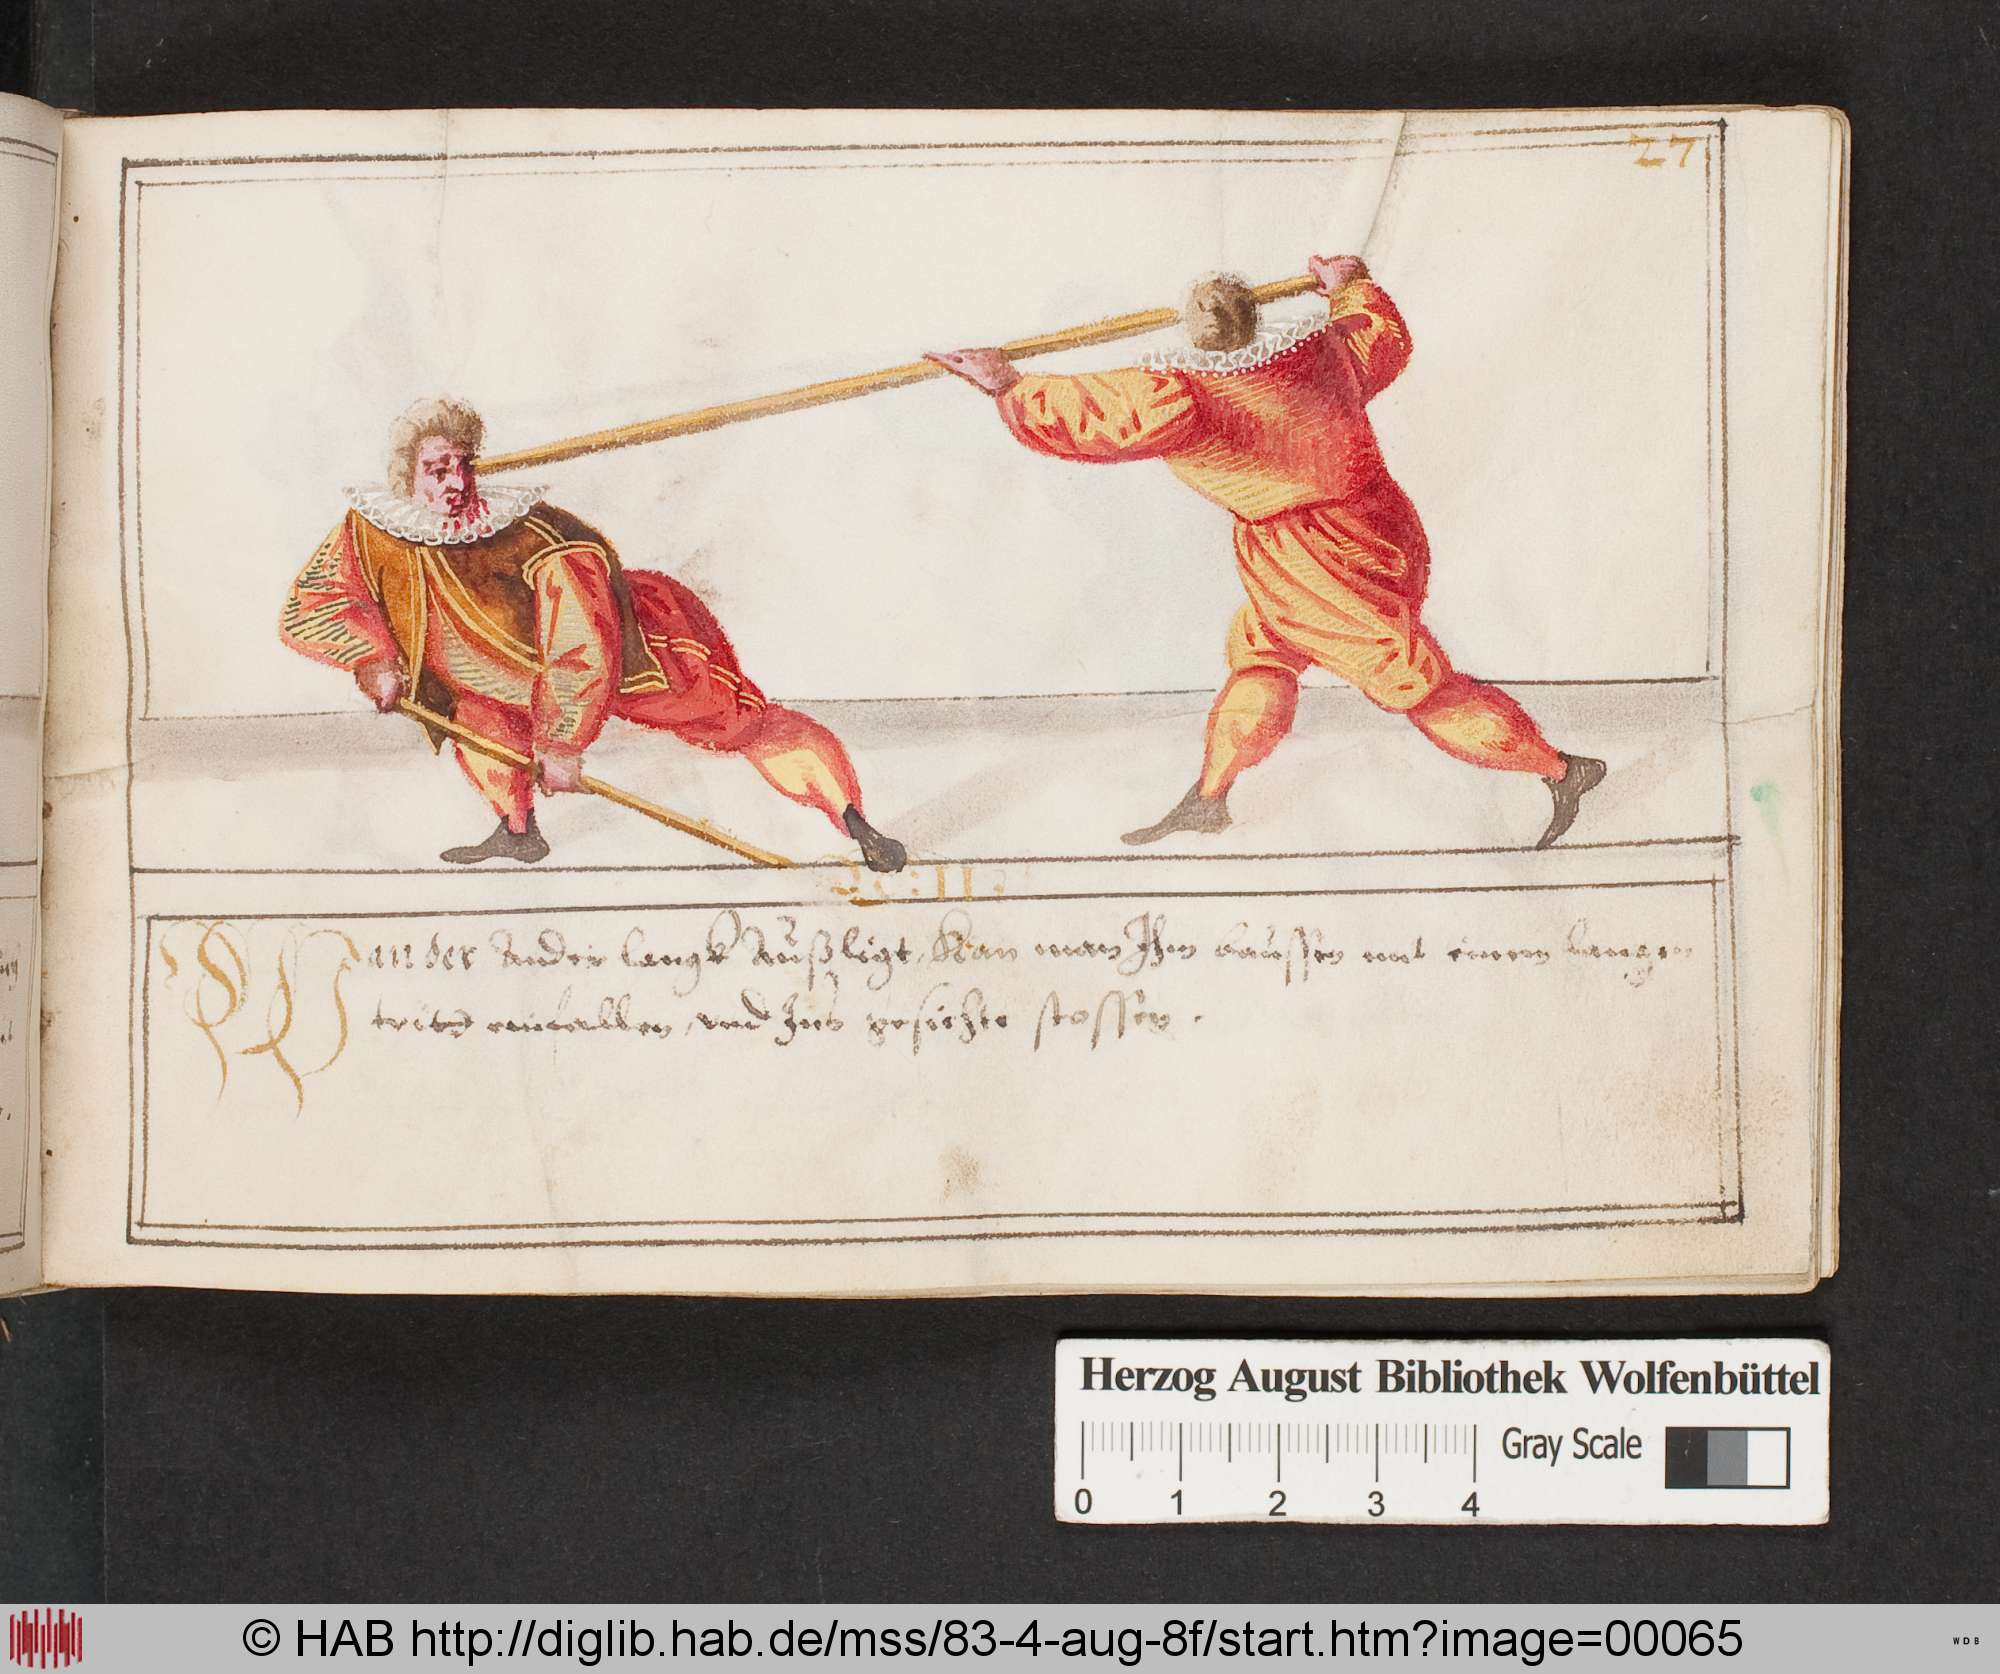 27.
II.
Wan der Ander langk Außligt, Kan man Ihm Aussen mit einem langen
tritt einfallen, und Ins gesichte stossen.
Herzog August Bibliothek Wolfenbüttel
Gray Scale
0 1 2 3 4
© HAB http://diglib.hab.de/mss/83-4-aug-8f/start.htm?image=00065
WDB